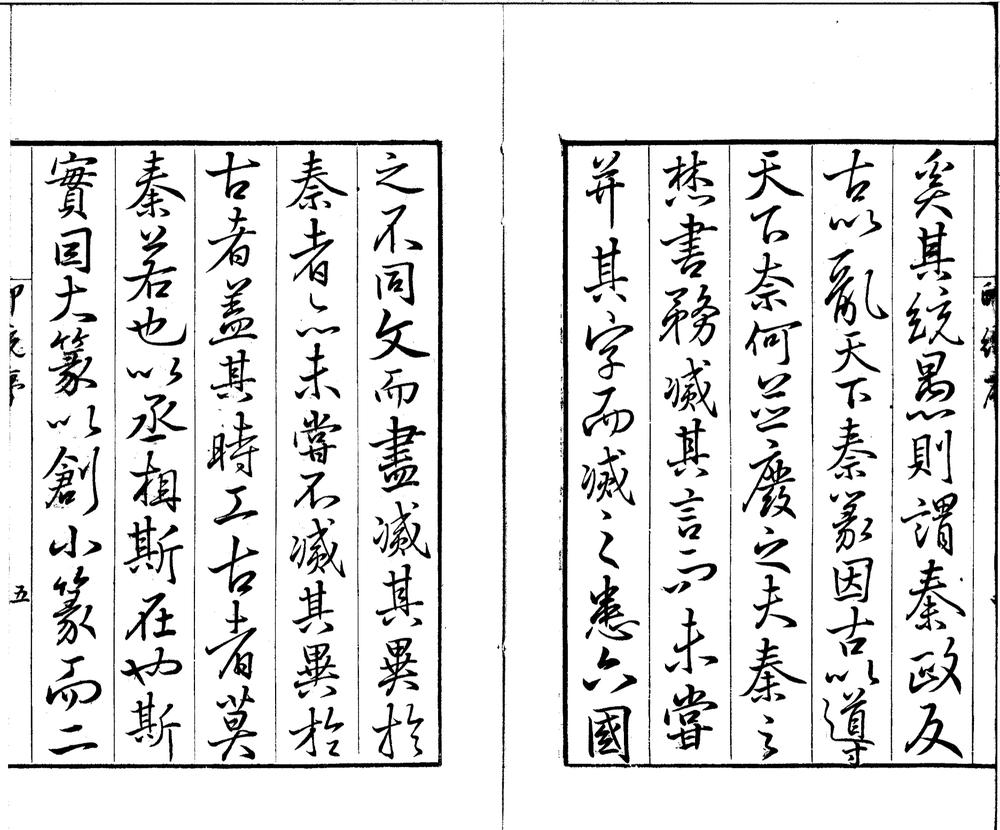 奚其統愚則謂秦政反
古以亂天下秦篆因古以導
天下奈何並廢之夫秦之
焚書務滅其言而未嘗
并其字而滅之悉六國
之不同文而盡滅其異於
秦者亦未嘗不滅其異於
古者蓋其時工古者莫
秦若也以丞相斯在也斯
實因大篆以創小篆而二
印統序
五